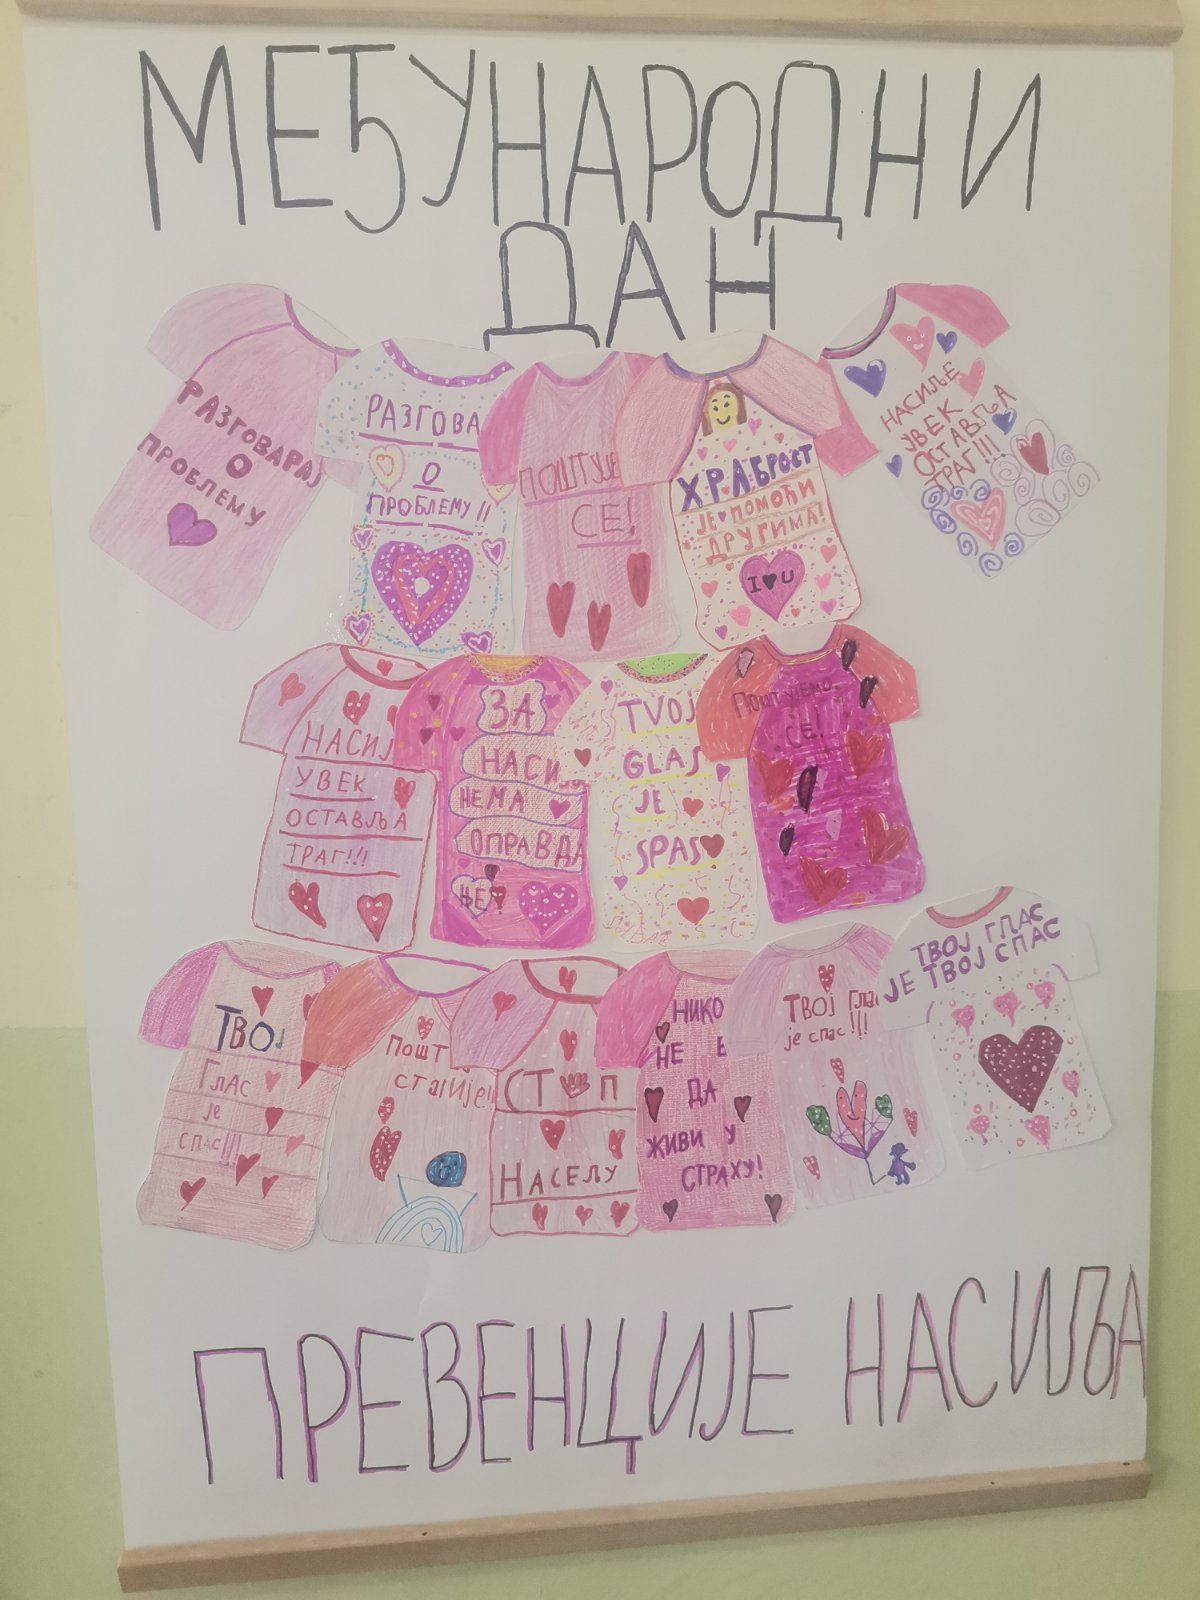 МЕЂУНАРОДНИ
ДАН
РАЗГОВАРАЈ
О
ПРОБЛЕМУ
РАЗГОВА
О
ПРОБЛЕМУ !!
ПОШТУЈЕ
СЕ!
ХРАБРОСТ
ЈЕ ПОМОЋИ
ДРУГИМА!
I U
НАСИЉЕ
УВЕК
ОСТАВЉА
ТРАГ!!!
НАСИЈ
УВЕК
ОСТАВЉА
ТРАГ!!!
ЗА
НАСИ
НЕМА
ОПРАВДА
ЊЕ!
TVOJ
GLAS
JE
SPAS
ПОШТУЈЕМО
СЕ!
ТВОЈ
ГЛАС
је
спас!!!
ПОШТ
СТАГИЈЕ!!
СТ П
НАСЕЉУ
НИКО
НЕ
ДА
ЖИВИ У
СТРАХУ!
ТВОЈ Глас
је спас!!!
ТВОЈ ГЛАС
ЈЕ ТВОЈ СПАС
ПРЕВЕНЦИЈЕ НАСИЉА